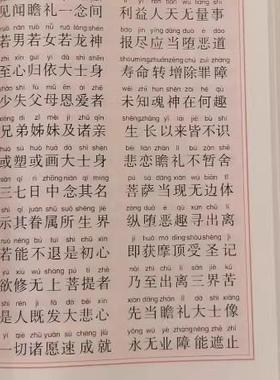 jiàn wén zhān lǐ yī niàn jiān lì yì rén tiān wú liàng shì
见闻瞻礼一念间 利益人天无量事
ruò nán ruò nǚ ruò lóng shén bào jìn yīng dāng duò è dào
若男若女若龙神 报尽应当堕恶道
zhì xīn guī yī dà shì shēn shòu mìng zhuǎn zēng chú zuì zhàng
至心归依大士身 寿命转增除罪障
shào shī fù mǔ ēn ài zhě wèi zhī hún shén zài hé qù
少失父母恩爱者 未知魂神在何趣
xiōng dì zǐ mèi jí zhū qīn shēng zhǎng yǐ lái jiē bù shí
兄弟姊妹及诸亲 生长以来皆不识
huò sù huò huà dà shì shēn bēi liàn zhān lǐ bù zàn shě
或塑或画大士身 悲恋瞻礼不暂舍
sān qī rì zhōng niàn qí míng pú sà dāng xiàn wú biān tǐ
三七日中念其名 菩萨当现无边体
shì qí juàn shǔ suǒ shēng jiè zòng duò è qù xún chū lí
示其眷属所生界 纵堕恶趣寻出离
ruò néng bú tuì shì chū xīn jí huò mó dǐng shòu shèng jì
若能不退是初心 即获摩顶受圣记
yù xiū wú shàng pú tí zhě nǎi zhì chū lí sān jiè kǔ
欲修无上菩提者 乃至出离三界苦
shì rén jì fā dà bēi xīn xiān dāng zhān lǐ dà shì xiàng
是人既发大悲心 先当瞻礼大士像
yī qiè zhū yuàn sù chéng jiù yǒng wú yè zhàng néng zhē zhǐ
一切诸愿速成就 永无业障能遮止